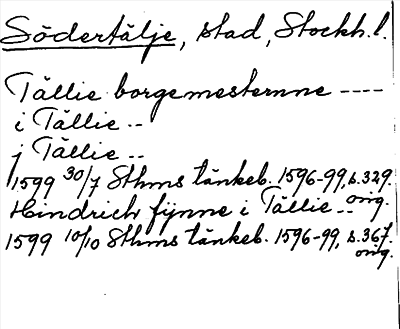 Södertälje, stad, Stockh. l.
Tällie borgemesternne ----
i Tällie --
j Tällie --
1599 30/7 Sthms tänkeb. 1596-99, s. 329. orig.
Hindrich fijnne i Tällie --
1599 10/10 Sthms tänkeb. 1596-99, s. 367. orig.